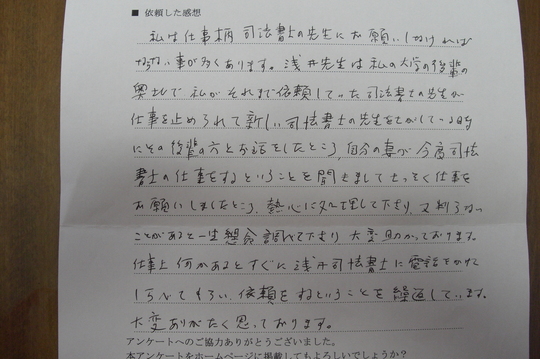 ■ 依頼した感想
私は仕事柄 司法書士の先生にお願いしなければ
ならない事が多くあります。浅井先生は私の大学の後輩の
奥さんで 私がそれまで依頼していた司法書士の先生が
仕事を止められて新しい司法書士の先生をさがしている時
にその後輩の方とお話をしたところ、自分の妻が今度司法
書士の仕事をするということを聞きましてさっそく仕事を
お願いしましたところ、熱心に処理して下さり、又判らない
ことがあると一生懸命調べて下さり、大変助かっております。
仕事上何かあるとすぐに浅井司法書士に電話をかけて
しらべてもらい、依頼をするということを繰返しています。
大変ありがたく思っております。
アンケートへのご協力ありがとうございました。
本アンケートをホームページに掲載してもよろしいでしょうか？